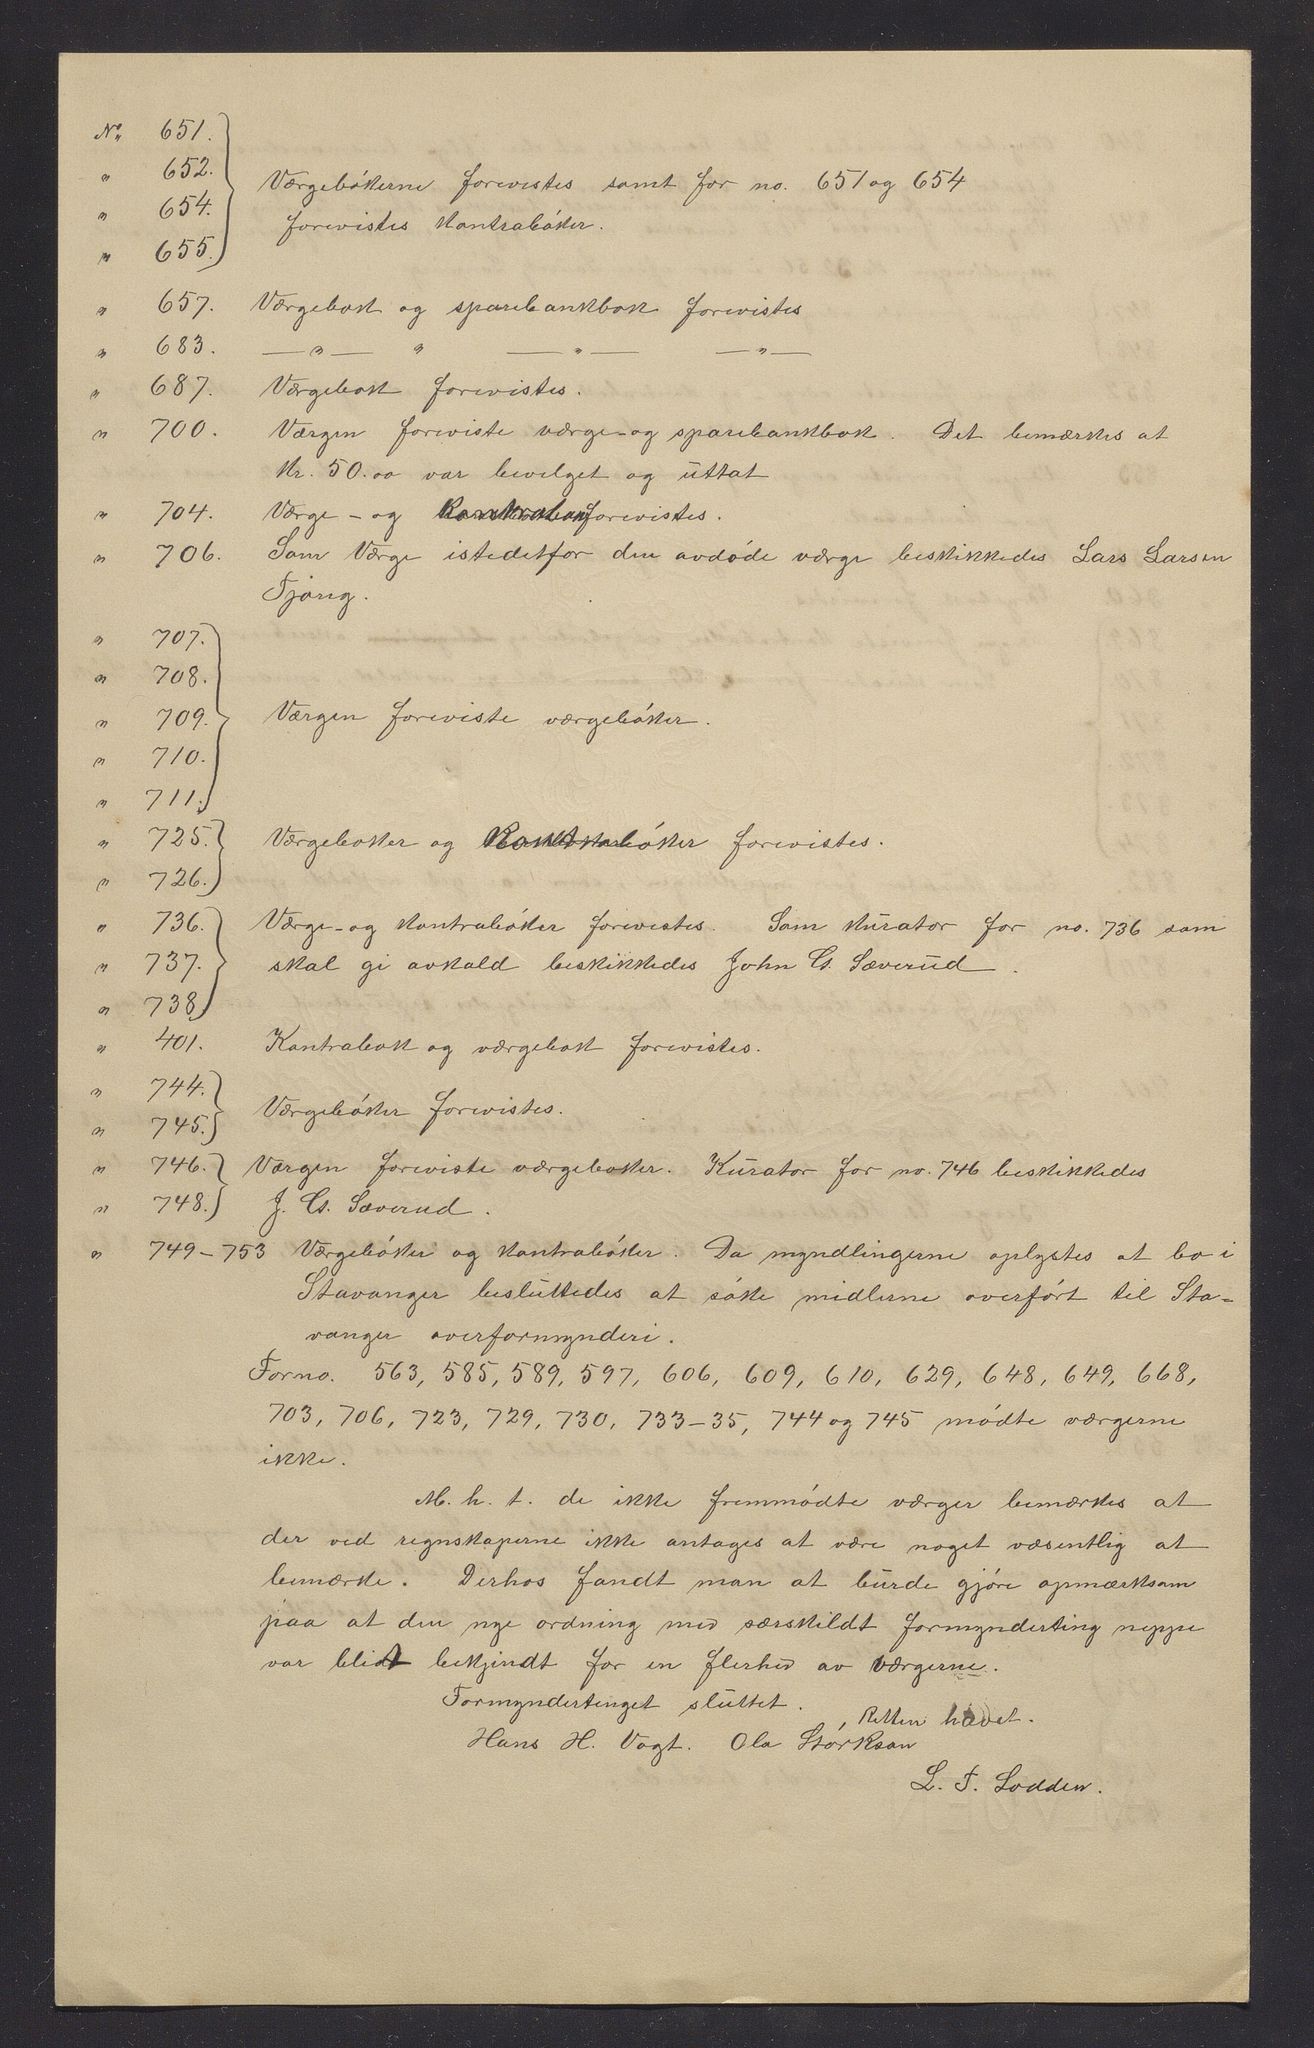 No. 651.
" 652.
" 654.
" 655.
Værgebökerne forevistes samt for no. 651 og 654
forevistes kontraböker.
" 657. Værgebok og sparebankbok forevistes
" 683. —"— " —"— —"—
" 687. Værgebok forevistes.
" 700. Værgen foreviste værge- og sparebankbok. Det bemærkes at
kr. 50.00 var bevilget og uttat
" 704. Værge- og Kontrabok forevistes.
" 706. Som Værge istedetfor den avdöde værge beskikkedes Lars Larsen
Tjong.
" 707.
" 708.
" 709. Værgen foreviste værgeböker.
" 710.
" 711.
" 725. Værgeboker og Kontraböker forevistes.
" 726.
" 736. Værge- og kontraböker forevistes. Som kurator for no. 736 som
" 737. skal gi avkald beskikkedes John G. Sæverud.
" 738
" 401. Kontrabok og værgebok forevistes.
" 744.
" 745. Værgeböker forevistes.
" 746. Værgen foreviste værgeboker. Kurator for no. 746 beskikkedes
" 748. J. G. Sæverud.
" 749-753 Værgeböker og kontraböker. Da myndlingerne oplystes at bo i
Stavanger besluttedes at söke midlerne overfört til Sta-
vanger overformynderi.
For no. 563, 585, 589, 597, 606, 609, 610, 629, 648, 649, 668,
703, 706, 723, 729, 730, 733-35, 744 og 745 mödte værgerne
ikke.
M. h. t. de ikke fremmödte værger bemærkes at
der ved regnskaperne ikke antages at være noget væsentlig at
bemærke. Derhos fandt man at burde gjöre opmærksom
paa at den nye ordning med særskildt formynderting neppe
var blidt bekjendt for en flerhed av værgerne.
Formyndertinget sluttet.
Retten hævet.
Hans H. Vogt. Ola Störkson
L. T. Lodden.